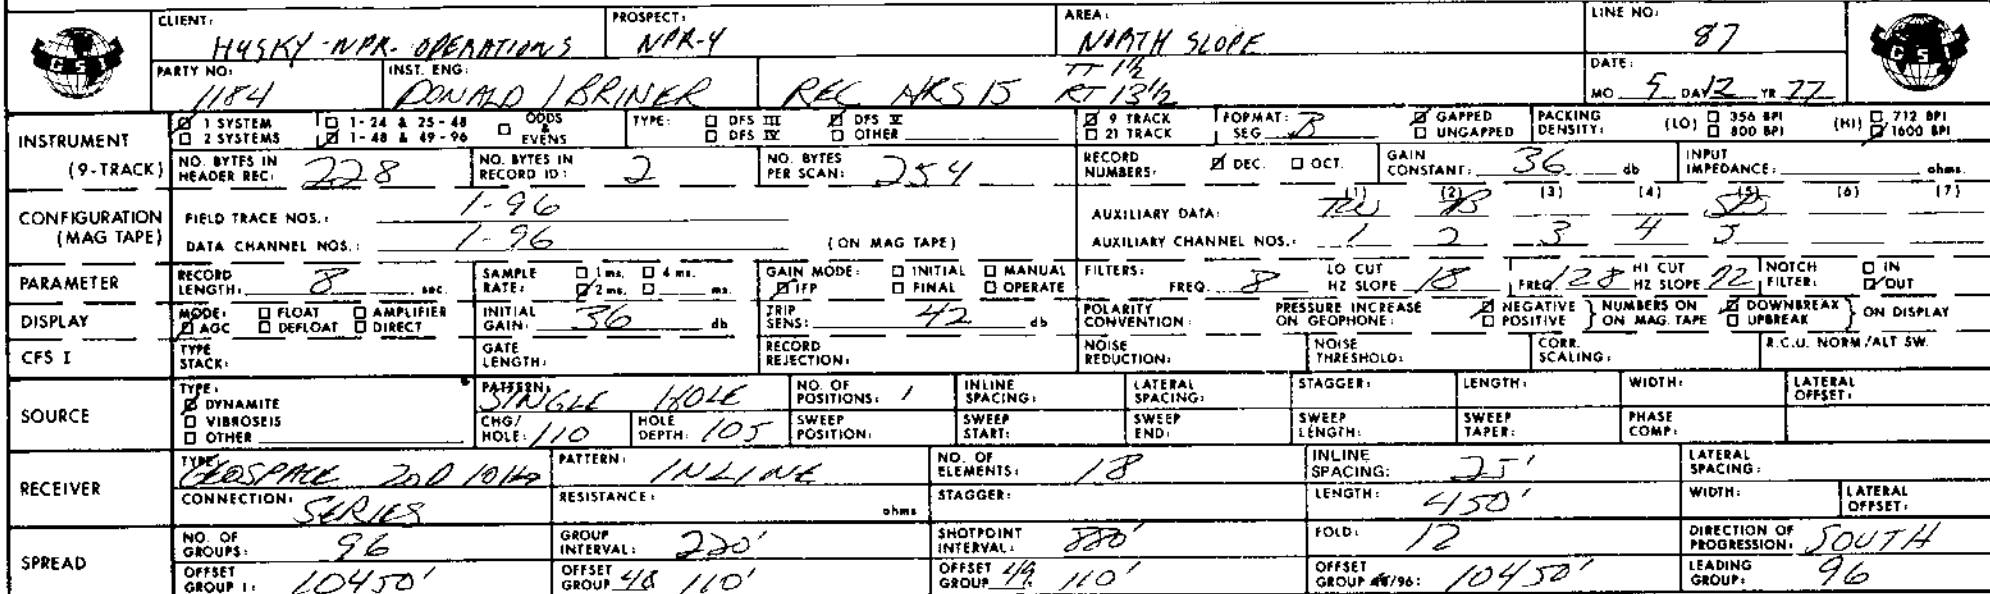 CLIENT: HUSKY-NPR-OPERATIONS PROSPECT: NPR-4 AREA: NORTH SLOPE LINE NO: 87
GSI GSI
PARTY NO: 1184 INST. ENG: DONALD / BRINER REC HRS 15 TT 1½ RT 13½ DATE: MO 5 DAY 12 YR 77
INSTRUMENT (9-TRACK) 1 SYSTEM 1-24 & 25-48 ODDS & EVENS TYPE: DFS III DFS V 9 TRACK FORMAT: SEG B GAPPED PACKING DENSITY: (LO) 356 BPI (HI) 712 BPI
2 SYSTEMS 1-48 & 49-96 DFS IV OTHER 21 TRACK UNGAPPED 800 BPI 1600 BPI
NO. BYTES IN HEADER REC: 228 NO. BYTES IN RECORD ID: 2 NO. BYTES PER SCAN: 254 RECORD NUMBERS: DEC. OCT. GAIN CONSTANT: 36 db INPUT IMPEDANCE: ohms.
CONFIGURATION (MAG TAPE) FIELD TRACE NOS.: 1-96 AUXILIARY DATA: (1) (2) (3) (4) (5) (6) (7)
DATA CHANNEL NOS.: 1-96 (ON MAG TAPE) AUXILIARY CHANNEL NOS.: 1 2 3 4 5
PARAMETER RECORD LENGTH: 8 sec. SAMPLE RATE: 1 ms. 4 ms. 2 ms. ms. GAIN MODE: INITIAL MANUAL IFP FINAL OPERATE FILTERS: FREQ. 8 LO CUT HZ SLOPE 18 FREQ 128 HI CUT HZ SLOPE 72 NOTCH FILTER: IN OUT
DISPLAY MODE: FLOAT AMPLIFIER AGC DEFLOAT DIRECT INITIAL GAIN: 36 db TRIP SENS: 42 db POLARITY CONVENTION: PRESSURE INCREASE ON GEOPHONE: NEGATIVE POSITIVE NUMBERS ON ON MAG. TAPE DOWNBREAK UPBREAK ON DISPLAY
CFS I TYPE STACK: GATE LENGTH: RECORD REJECTION: NOISE REDUCTION: NOISE THRESHOLD: CORR. SCALING: R.C.U. NORM/ALT SW.
SOURCE TYPE: DYNAMITE VIBROSEIS OTHER PATTERN: SINGLE HOLE NO. OF POSITIONS: 1 INLINE SPACING: LATERAL SPACING: STAGGER: LENGTH: WIDTH: LATERAL OFFSET:
CHG/HOLE: 110 HOLE DEPTH: 105 SWEEP POSITION: SWEEP START: SWEEP END: SWEEP LENGTH: SWEEP TAPER: PHASE COMP:
RECEIVER TYPE: GEOSPACE 20D 10Hz PATTERN: INLINE NO. OF ELEMENTS: 18 INLINE SPACING: 25' LATERAL SPACING:
CONNECTION: SERIES RESISTANCE: ohms STAGGER: LENGTH: 450' WIDTH: LATERAL OFFSET:
SPREAD NO. OF GROUPS: 96 GROUP INTERVAL: 220' SHOTPOINT INTERVAL: 880' FOLD: 12 DIRECTION OF PROGRESSION: SOUTH
OFFSET GROUP 1: 10450' OFFSET GROUP 48 110' OFFSET GROUP 49 110' OFFSET GROUP /96: 10450' LEADING GROUP: 96